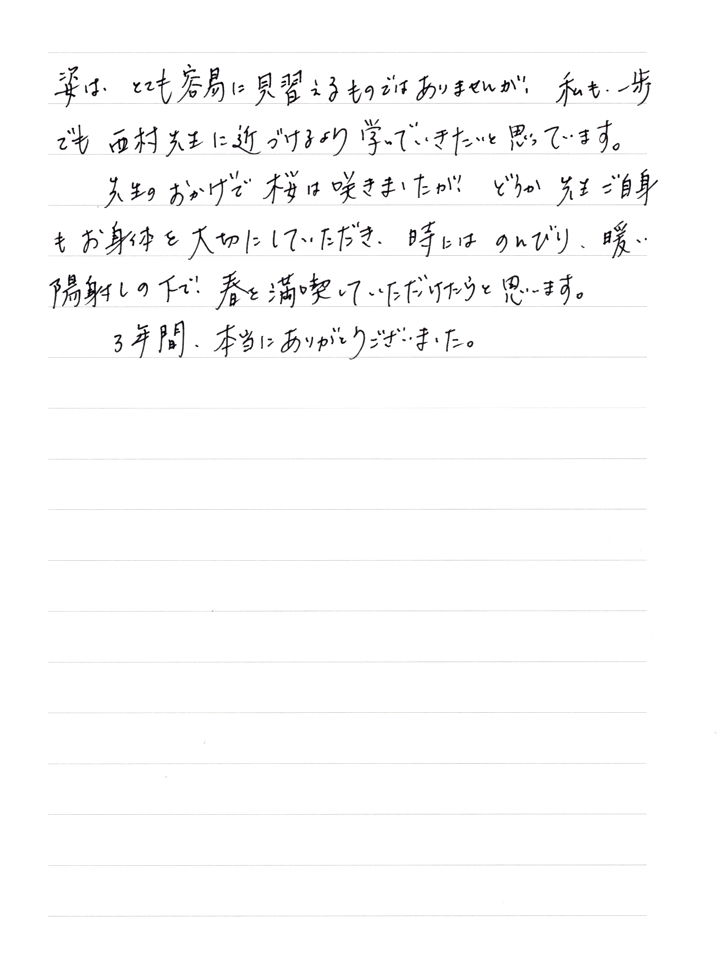 姿は、とても容易に見習えるものではありませんが、私も、一歩
でも西村先生に近づけるよう学んでいきたいと思っています。
先生のおかげで桜は咲きましたが、どうか先生ご自身
もお身体を大切にしていただき、時にはのんびり、暖い
陽射しの下で、春を満喫していただけたらと思います。
3年間、本当にありがとうございました。